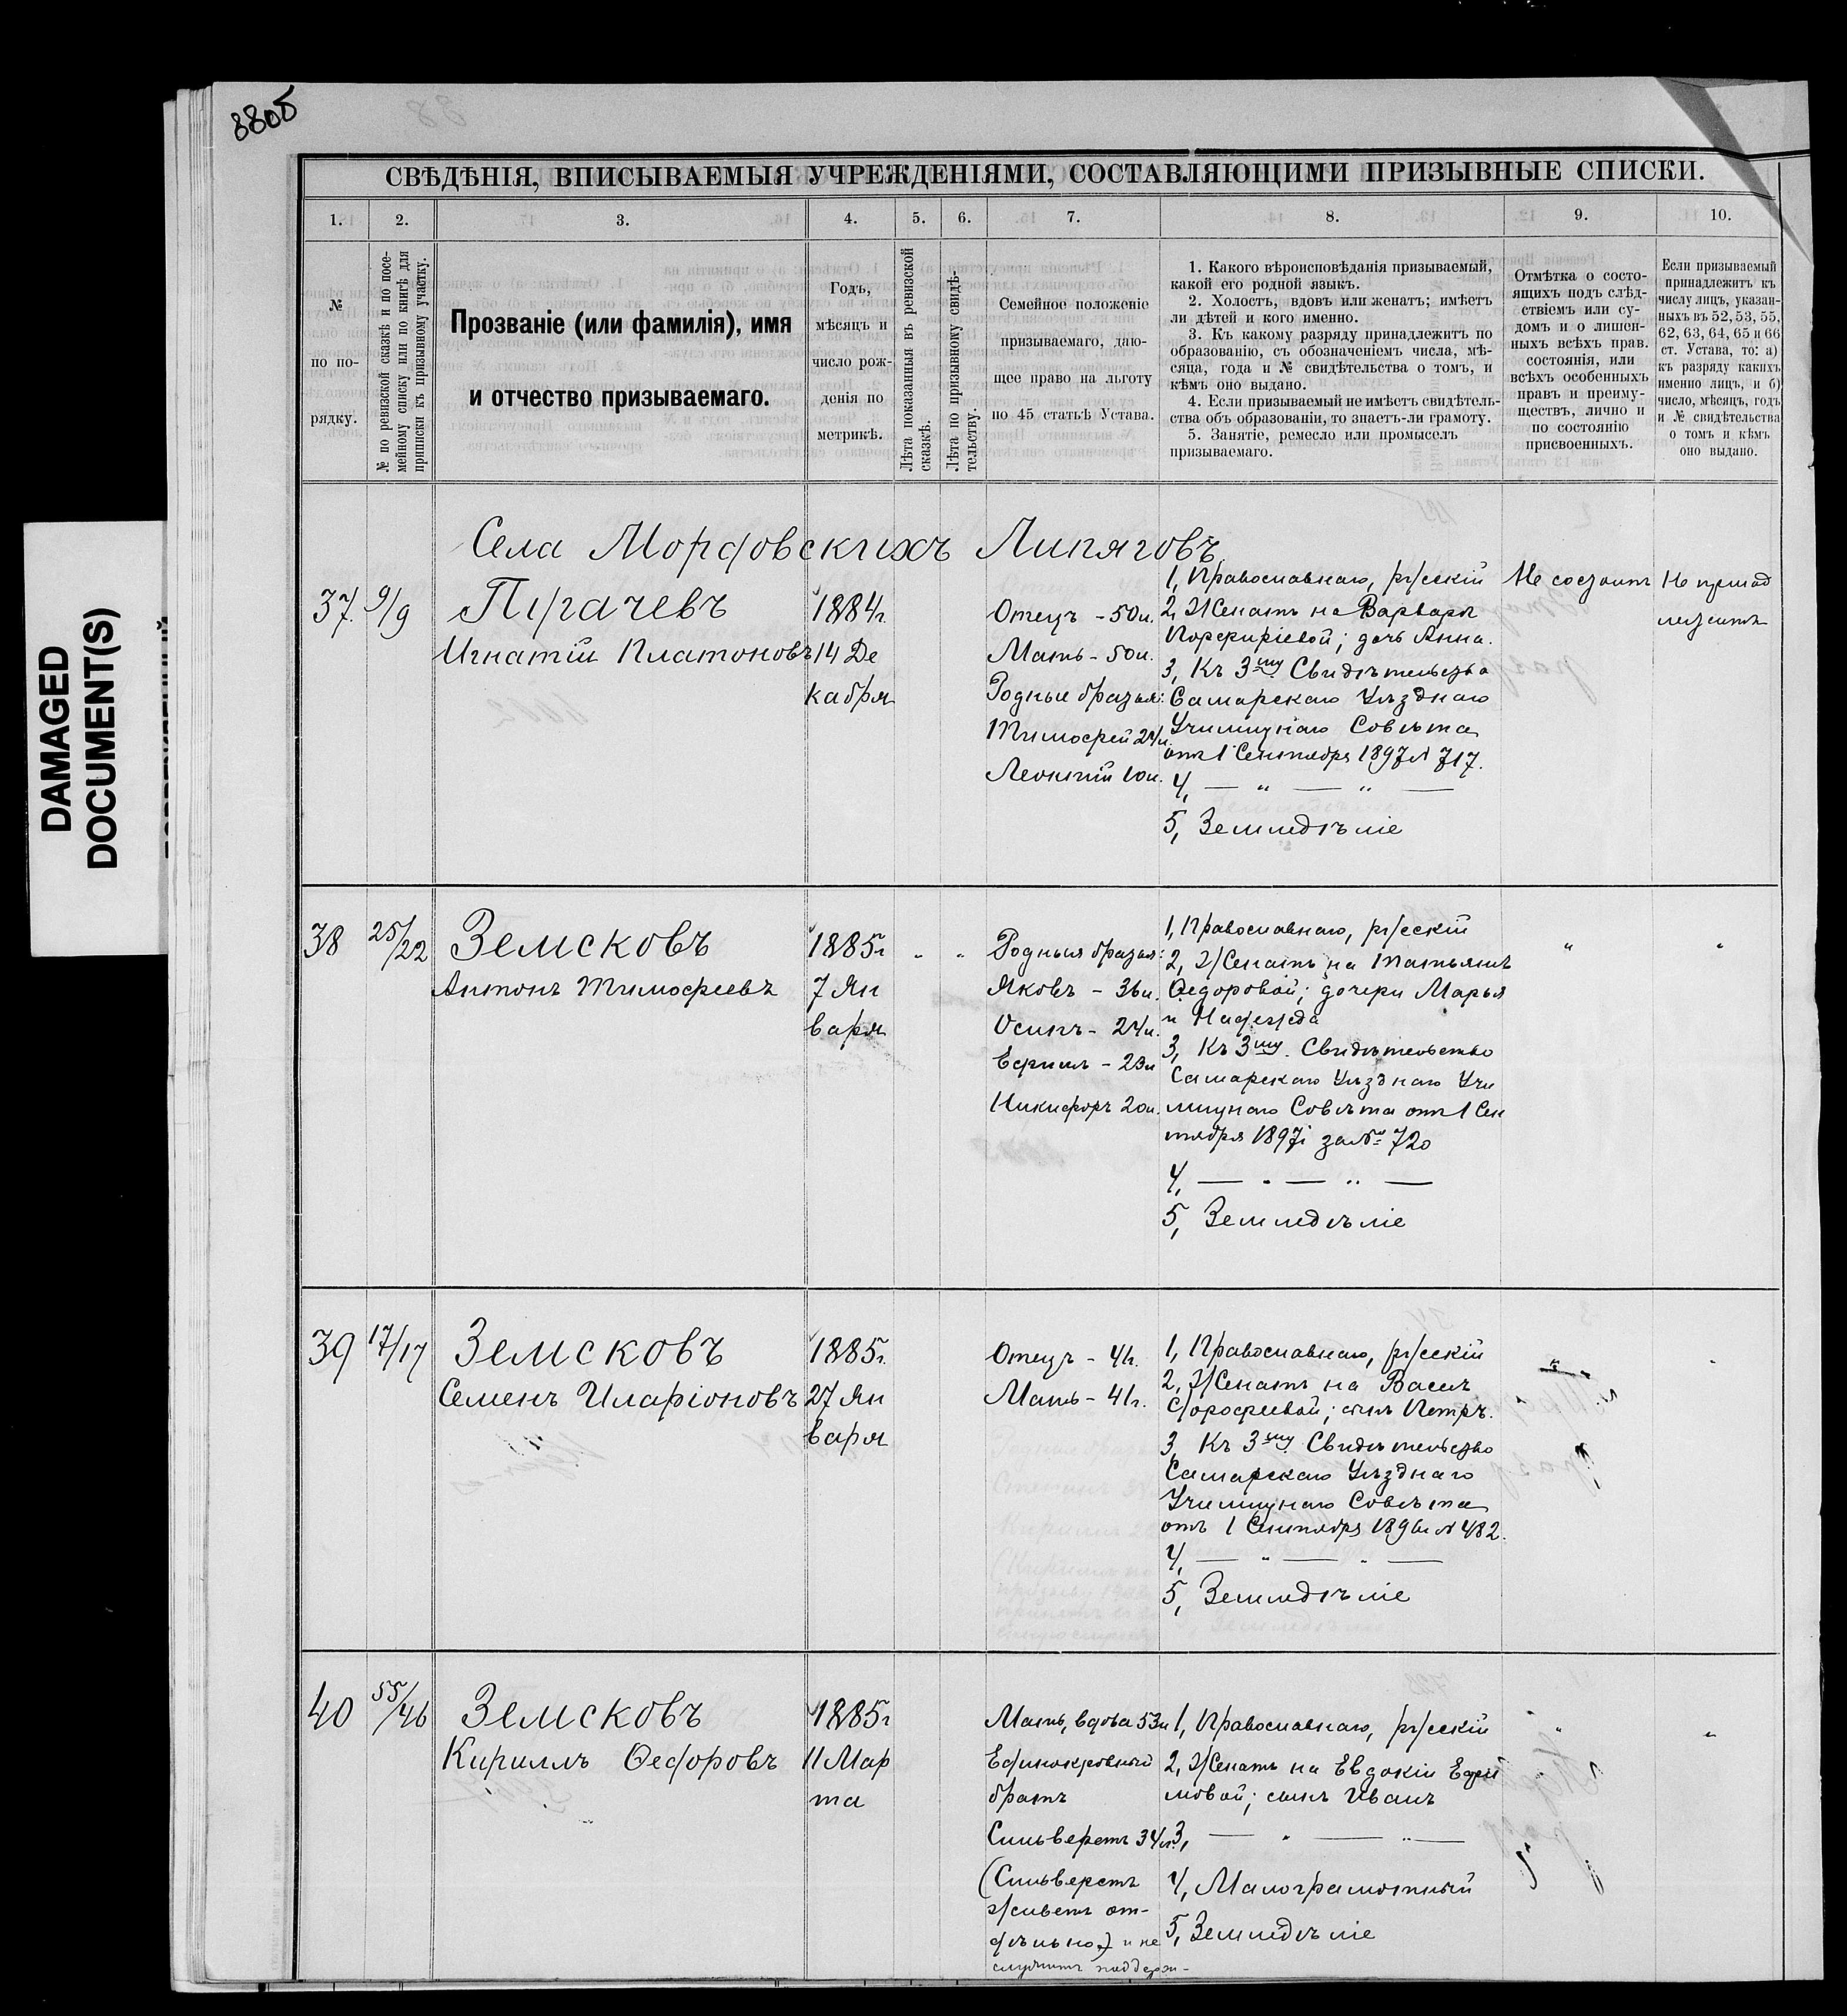 880б
DAMAGED
DOCUMENT(S)
СВѢДѢНІЯ, ВПИСЫВАЕМЫЯ УЧРЕЖДЕНІЯМИ, СОСТАВЛЯЮЩИМИ ПРИЗЫВНЫЕ СПИСКИ.
1. 2. 3. 4. 5. 6. 7. 8. 9. 10.
№
по по-
рядку.
№ по ревизской сказкѣ и по посе-
мейному списку или по книгѣ для
приписки къ призывному участку.
Прозваніе (или фамилія), имя
и отчество призываемаго.
Годъ,
мѣсяцъ и
число рож-
денія по
метрикѣ.
Лѣта показанныя въ ревизской
сказкѣ.
Лѣта по призывному свидѣ-
тельству.
Семейное положеніе
призываемаго, даю-
щее право на льготу
по 45 статьѣ Устава.
1. Какого вѣроисповѣданія призываемый,
какой его родной языкъ.
2. Холостъ, вдовъ или женатъ; имѣетъ
ли дѣтей и кого именно.
3. Къ какому разряду принадлежитъ по
образованію, съ обозначеніемъ числа, мѣ-
сяца, года и № свидѣтельства о томъ, и
кѣмъ оно выдано.
4. Если призываемый не имѣетъ свидѣтель-
ства объ образованіи, то знаетъ-ли грамоту.
5. Занятіе, ремесло или промыселъ
призываемаго.
Отмѣтка о состо-
ящихъ подъ слѣд-
ствіемъ или су-
домъ и о лишен-
ныхъ всѣхъ прав.
состоянія, или
всѣхъ особенныхъ
правъ и преиму-
ществъ, лично и
по состоянію
присвоенныхъ.
Если призываемый
принадлежитъ къ
числу лицъ, указан-
ныхъ въ 52, 53, 55,
62, 63, 64, 65 и 66
ст. Устава, то: а)
къ разряду какихъ
именно лицъ, и б)
число, мѣсяцъ, годъ
и № свидѣтельства
о томъ и кѣмъ
оно выдано.
Села Мордовскихъ Липяговъ
37. 9/9
Пугачевъ
Игнатій Платоновъ
1884г.
14 Де
кабря
Отецъ - 50л.
Мать - 50л.
Родные братья:
Тимофей 24л.
Леонтій 10л.
1, Православнаго, русскій
2, Женатъ на Варварѣ
Порфиріевой; дочь Анна.
3, Къ 3му Свидѣтельство
Самарскаго Уѣзднаго
Училищнаго Совѣта
отъ 1 Сентября 1897 № 717.
4, — „ — „ —
5, Земледѣліе
Не состоитъ
Не принад
лежитъ
38 25/22
Земсковъ
Антонъ Тимофеевъ
1885г
7 Ян
варя
„ „
Родныя братья:
Яковъ - 36л.
Осипъ - 24л.
Ефимъ - 23л
Никифоръ 20л.
1, Православнаго, русскій
2, Женатъ на Татьянѣ
Ѳедоровой; дочери Марья
и Надежда
3, Къ 3му. Свидѣтельство
Самарскаго Уѣзднаго Учи
лищнаго Совѣта отъ 1 Сен
тября 1897г за № 720
4, — „ — „ —
5, Земледѣліе
„
„
39 17/17
Земсковъ
Семенъ Иларіоновъ
1885г.
27 Ян
варя
Отецъ - 41г.
Мать - 41г.
1, Православнаго, русскій
2, Женатъ на Васил
Дорофеевой; сынъ Петръ.
3, Къ 3му Свидѣтельство
Самарскаго Уѣзднаго
Училищнаго Совѣта
отъ 1 Сентября 1896г № 482.
4, — „ — „ —
5, Земледѣліе
„
„
40 55/46
Земсковъ
Кириллъ Ѳедоровъ
1885г
11 Мар
та
Мать, вдова 53л
Единокровный
братъ
Сильверстъ 34л.
(Сильверстъ
живетъ от-
дѣльно) и не
служитъ поддерж-
1, Православнаго, русскій
2, Женатъ на Евдокіи Ефи
мовой; сынъ Иванъ
3, — „ — „ —
4, Малограмотный
5, Земледѣліе
„
„